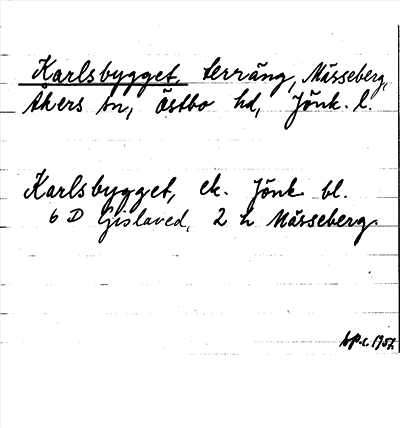 Karlsbygget, terräng, Mässeberg,
Åkers sn, Östbo hd, Jönk. l.
Karlsbygget, ek. Jönk. bl.
6 D Gislaved, 2 h Mässeberg.
1957